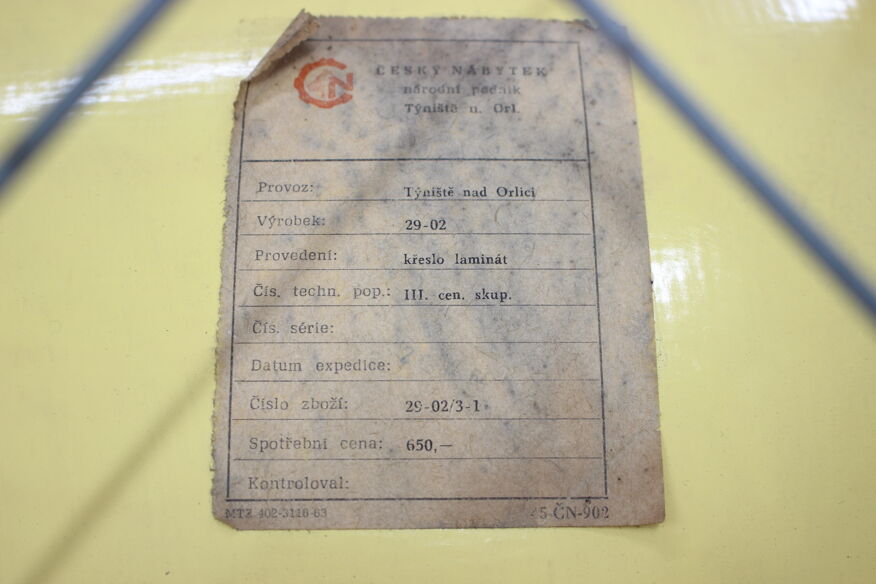 ČN
ČESKÝ NÁBYTEK
národní podnik
Týniště n. Orl.
Provoz: Týniště nad Orlicí
Výrobek: 29-02
Provedení: křeslo laminát
Čís. techn. pop.: III. cen. skup.
Čís. série:
Datum expedice:
Číslo zboží: 29-02/3-1
Spotřební cena: 650,—
Kontroloval:
MTZ 402-3110-63 ČN-902